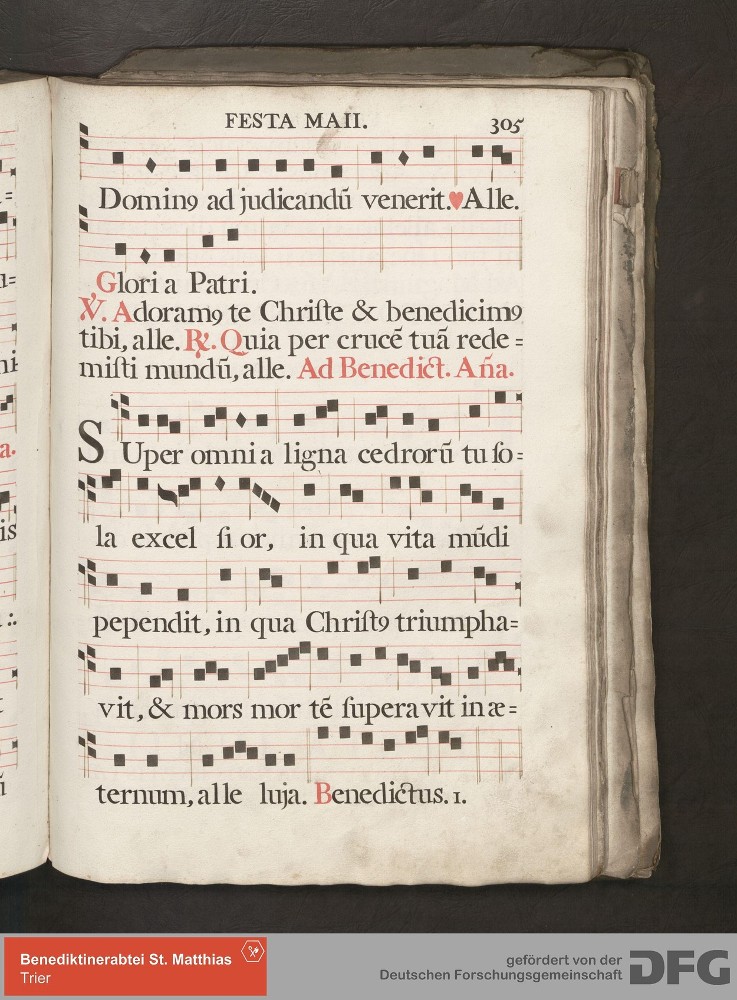 FESTA MAII. 305
Dominꝯ ad judicandū venerit.♥Alle.
Gloria Patri.
℣. Adoramꝯ te Chriſte & benedicimꝯ
tibi, alle. ℟. Quia per crucē tuā rede=
miſti mundū, alle. Ad Benedict. Aña.
SUper omnia ligna cedrorū tu ſo=
la excelſior, in qua vita mūdi
pependit, in qua Chriſtꝯ triumpha=
vit, & mors mortē ſuperavit in æ=
ternum, alleluja. Benedictus. 1.
Benediktinerabtei St. Matthias
Trier
gefördert von der
Deutschen Forschungsgemeinschaft
DFG